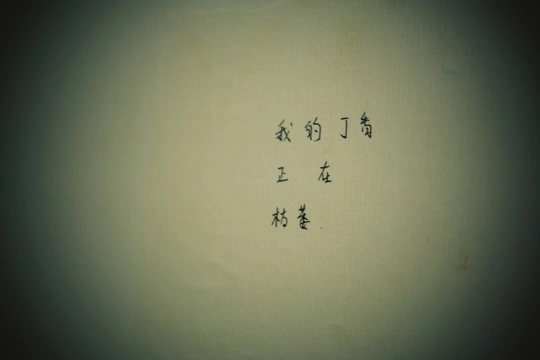 我的丁香
正在
枯萎.